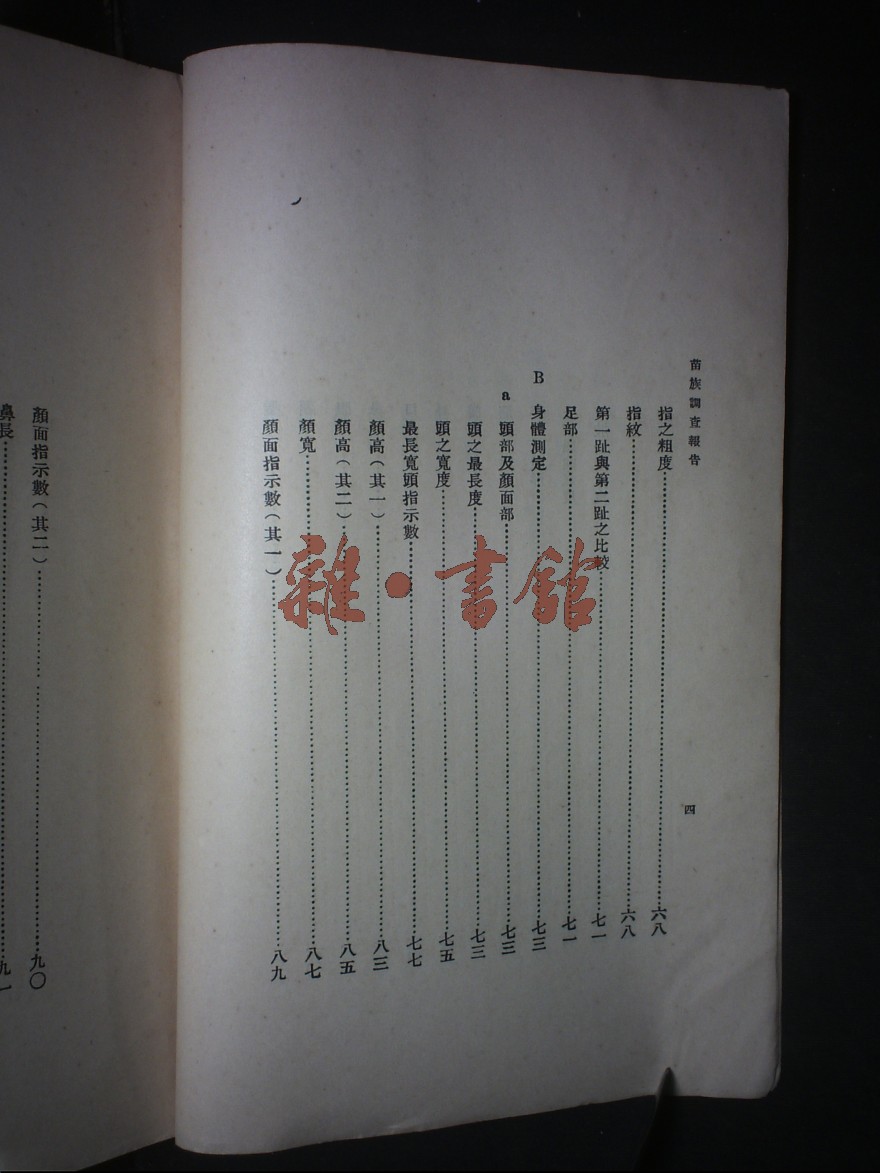 苗族調查報告
四
指之粗度……六八
指紋……六八
第一趾與第二趾之比較……七一
足部……七一
B 身體測定……七三
a 頭部及顏面部……七三
頭之最長度……七三
頭之寬度……七五
最長寬頭指示數……七七
顏高(其一)……八三
顏高(其二)……八五
顏寬……八七
顏面指示數(其一)……八九
顏面指示數(其二)……九〇
鼻長……九一
雜·書館